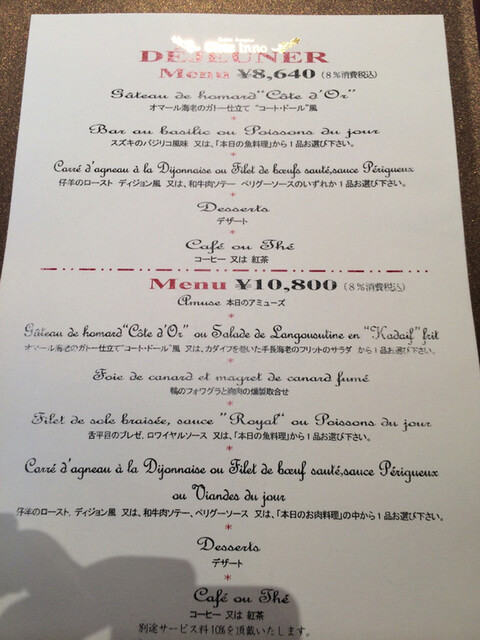 DÉJEUNER
Menu ¥8,640 (8%消費税込)
Gâteau de homard "Côte d'Or"
オマール海老のガトー仕立て "コート・ドール"風
*
Bar au basilic ou Poissons du jour
スズキのバジリコ風味 又は、「本日の魚料理」から1品お選び下さい。
*
Carré d'agneau à la Dijonnaise ou Filet de bœufs sauté,sauce Périgueux
仔羊のロースト ディジョン風 又は、和牛肉ソテー ペリグーソースのいずれか1品お選び下さい。
*
Desserts
デザート
*
Café ou Thé
コーヒー 又は 紅茶
Menu ¥10,800 (8%消費税込)
Amuse 本日のアミューズ
*
Gâteau de homard"Côte d'Or" ou Salade de Langousutine en "Kadaif" frit
オマール海老のガトー仕立て"コート・ドール"風 又は、カダイフを巻いた手長海老のフリットのサラダ から1品お選び下さい。
*
Foie de canard et magret de canard fumé
鴨のフォワグラと胸肉の燻製取合せ
*
Filet de sole braisée, sauce "Royal" ou Poissons du jour
舌平目のブレゼ、ロワイヤルソース 又は、「本日の魚料理」から1品お選び下さい。
*
Carré d'agneau à la Dijonnaise ou Filet de bœuf sauté,sauce Périgueux
ou Viandes du jour
仔羊のロースト、ディジョン風 又は、和牛肉ソテー、ペリグーソース 又は、「本日のお肉料理」の中から1品お選び下さい。
*
Desserts
デザート
*
Café ou Thé
コーヒー 又は 紅茶
別途サービス料10%を頂戴いたします。